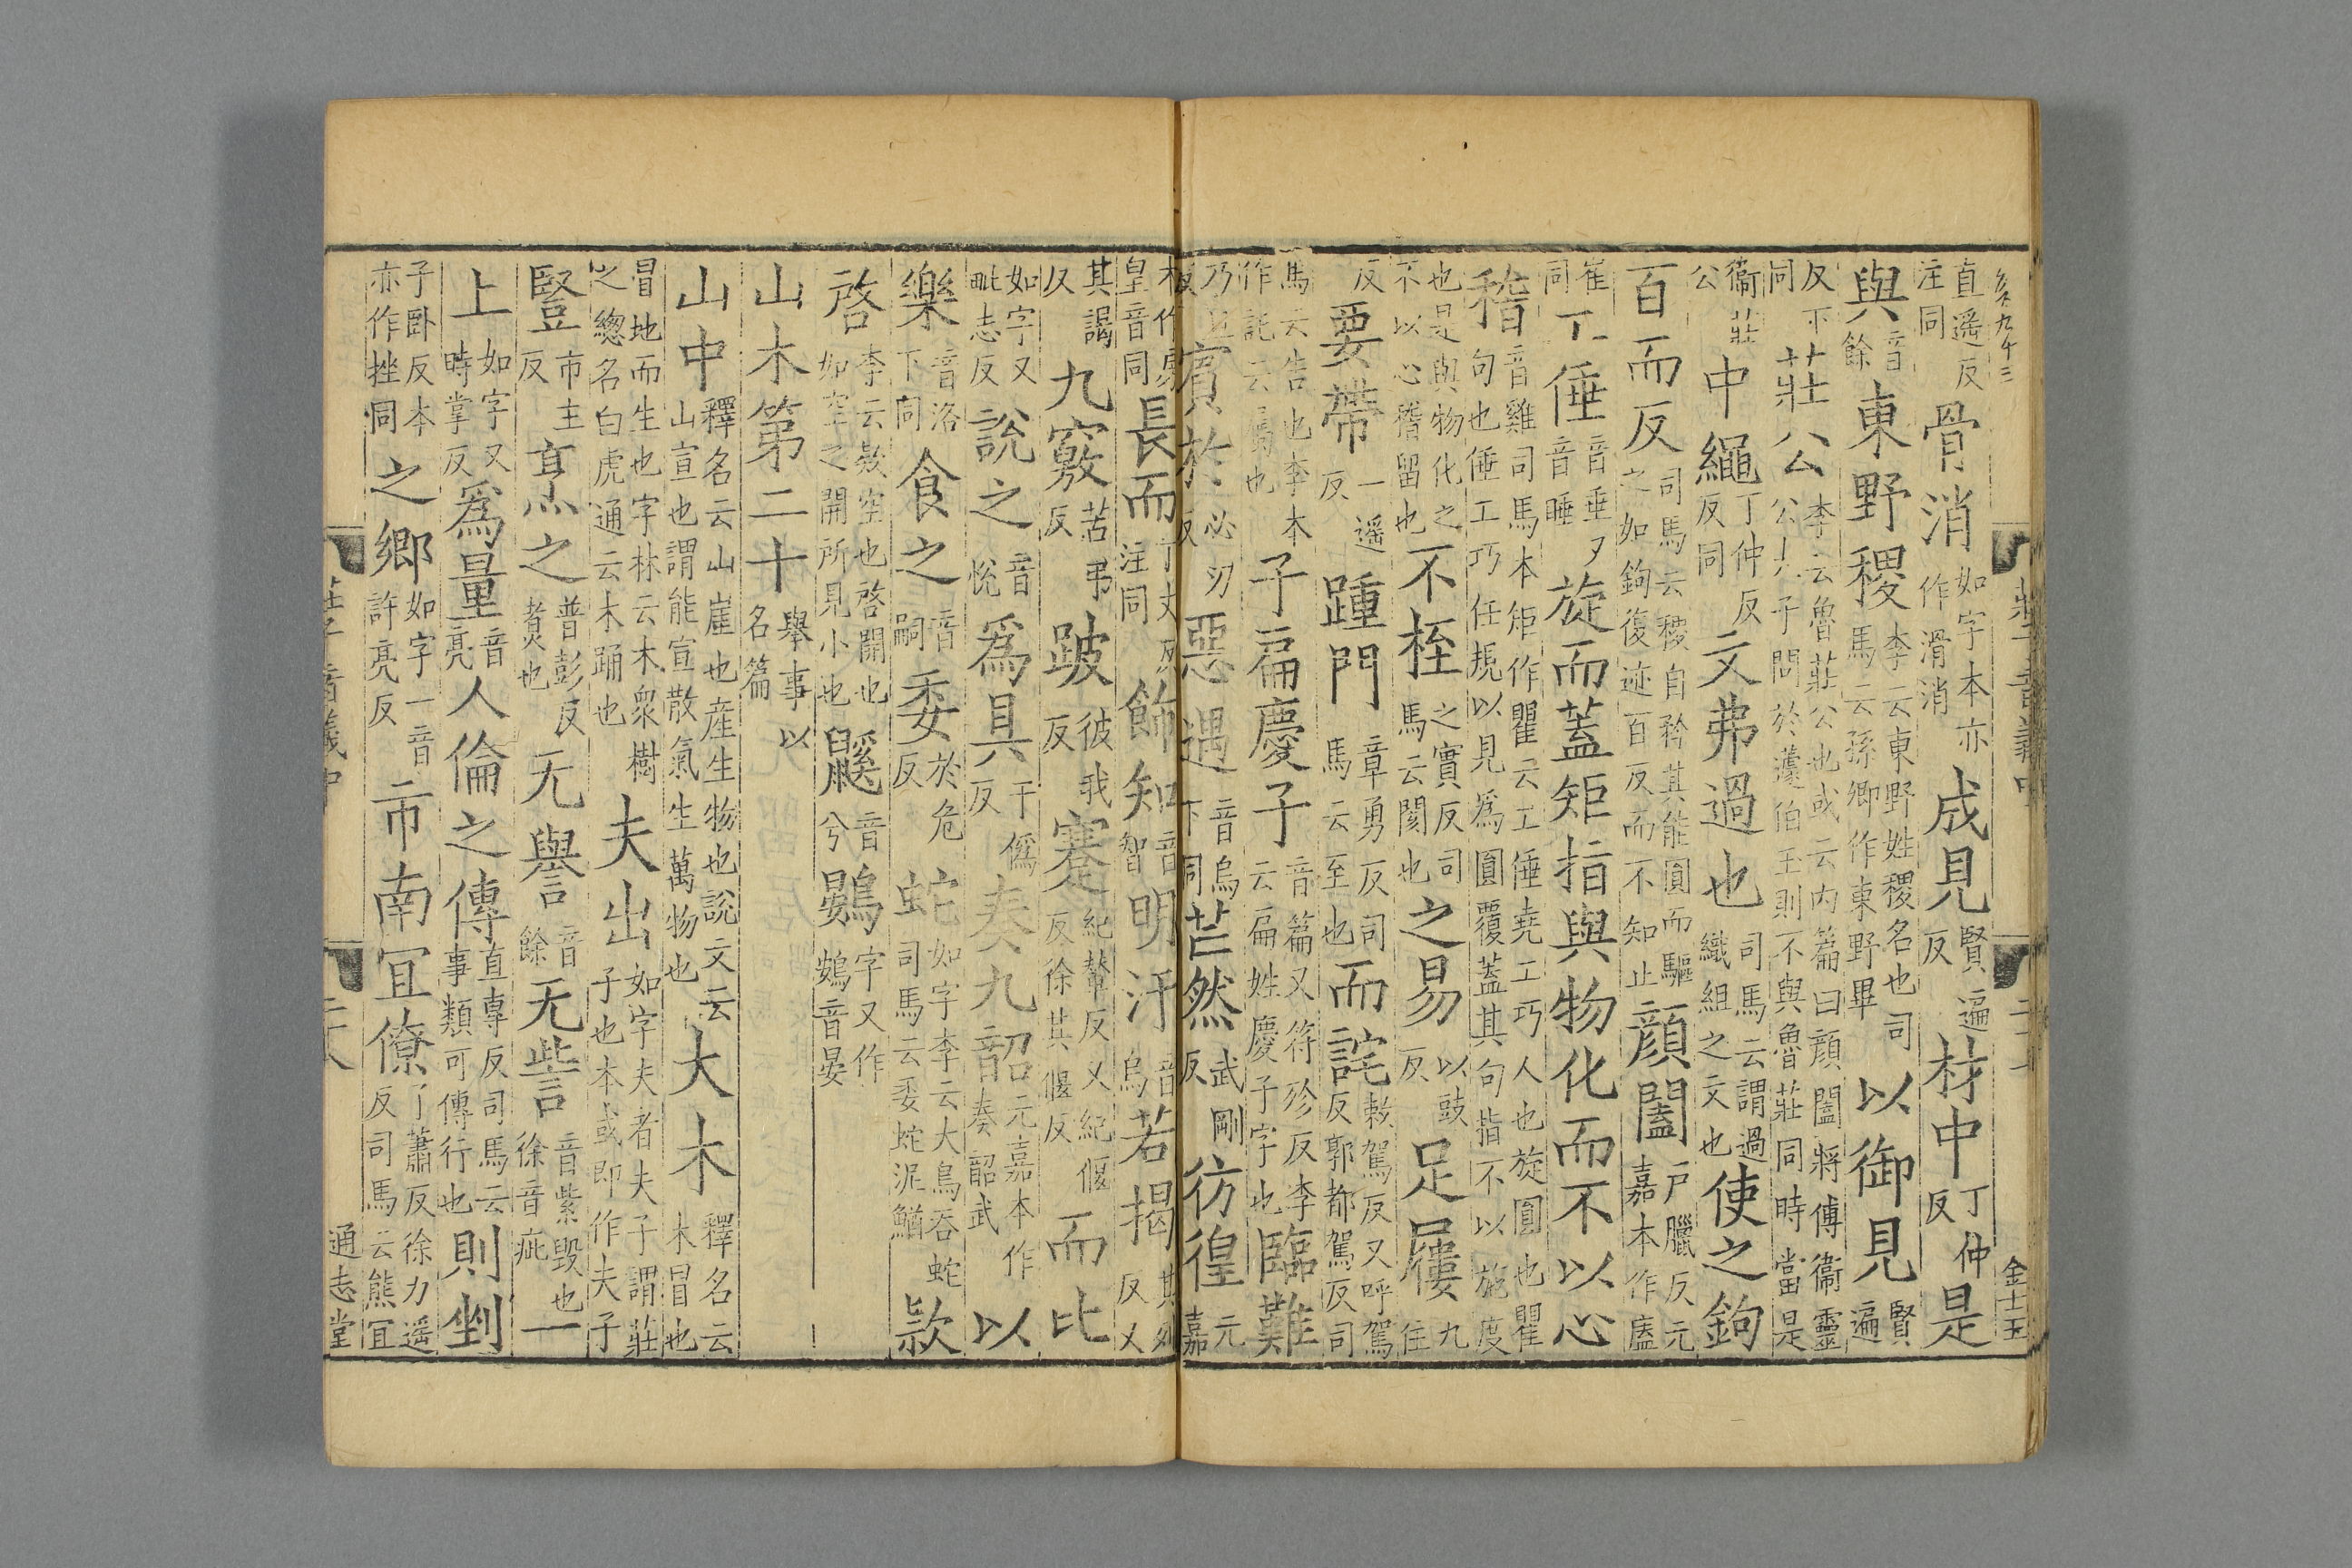 直遥反注同骨消如字本亦作滑消成見賢遍反材中丁仲反是
與音餘東野稷李云東野姓稷名也司馬云孫卿作東野畢以御見賢遍
反下同莊公李云魯莊公也或云内篇曰顔闔將傅衞靈公太子問於蘧伯玉則不與魯莊同時當是
衞莊公中繩丁仲反同文弗過也司馬云謂過織組之文也使之鉤
百而反司馬云稷自矜其能圓而驅之如鉤復迹百反而不知止顔闔戸臘反元嘉本作廅
崔同工倕音垂又音睡旋而蓋矩指與物化而不以心
稽音雞司馬本矩作瞿云工倕堯工巧人也旋圓也瞿句也倕工巧任規以見爲圓覆蓋其句指不以施度
也是與物化之不以心稽留也不桎之實反司馬云閡也之易以豉反足屨九住
反要帶一遥反踵門章勇反司馬云至也而詫敕駕反又呼駕反郭都駕反司
馬云告也李本作託云屬也子扁慶子音篇又符殄反李云扁姓慶子字也臨難
乃旦反賓於必刃反惡遇音烏下同芒然武剛反彷徨元嘉
本作房皇音同長而丁丈反注同飾知音智明汙音烏若揭其列反又
其謁反九竅苦弔反跛彼我反蹇紀輦反又紀偃反徐其偃反而比
如字又毗志反說之音悅爲具于僞反奏九韶元嘉本作奏韶武以
樂音洛下同食之音嗣委於危反蛇如字李云大鳥吞蛇司馬云委蛇泥鰌款
啓李云款空也啓開也如空之開所見小也鼷音兮鷃字又作鴳音晏
山木第二十舉事以名篇
山中釋名云山崖也産生物也說文云山宣也謂能宣散氣生萬物也大木釋名云木冒也
冒地而生也字林云木衆樹之總名白虎通云木踊也夫出如字夫者夫子謂莊子也本或即作夫子
豎市主反亯之普彭反煑也无譽音餘无訾音紫毀也徐音疵一
上如字又時掌反爲量音亮人倫之傳直專反司馬云事類可傳行也則剉
子臥反本亦作挫同之鄉如字一音許亮反市南宜僚了蕭反徐力遥反司馬云熊宜
通志堂